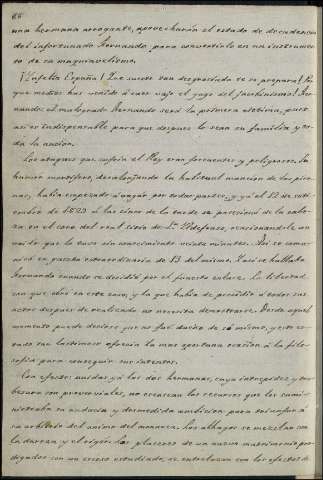 66
una hermana arrogante, aprovecharán el estado de decadencia
del infortunado Fernando para convertirlo en un instrumen-
to de su maquiavelismo.
¡Infeliz España! ¡Que suerte tan desgraciada se te prepara! Por
que medios has venido á caer bajo el yugo del Jacobinismo! Fer-
nando: el malogrado Fernando será la primera victima, pues
asi es indispensable para que despues lo sean su familia y to-
da la nacion.
Los ataques que sufria el Rey eran frecuentes y peligrosos. Un
humor mortifero, desalojando la habitual mancion de las pier-
nas, habia empezado á vagar por todas partes, y ya el 12 de seti-
embre de 1829 á las cinco de la tarde se posesionó de la cabe-
za en el coche del real sitio de Sn. Ildefonso, ocasionandole un
que le tuvo sin conocimiento veinte minutos. Asi se comu-
nicó en gaceta extraordinaria de 13 del mismo. Y asi se hallaba
Fernando cuando se decidió por el funesto enlace. La libertad
con que obró en este caso, y la que habia de presidir á todos sus
actos despues de realizado no necesita demostrarse. Desde aquel
momento puede decirse que no fue dueño de sí mismo, y este es-
tado tan lastimoso ofrecia la mas oportuna ocasion á la filo-
sofia para conseguir sus intentos.
Con efecto: unidas ya las dos hermanas, cuya intrepidez y
son proverbiales, no escasean los recursos que les sumi-
nistraba su audacia y desmedida ambicion para triunfar á
su arbitrio del animo del monarca. Los alhagos se mezclan con
la dureza y el rigor: los placeres de un nuevo matrimonio pro-
digados con un exceso estudiado, se entrelazan con los efectos de